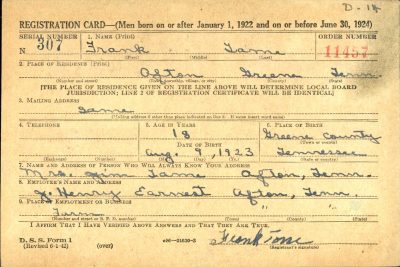 D-14
REGISTRATION CARD—(Men born on or after January 1, 1922 and on or before June 30, 1924)
SERIAL NUMBER 1. NAME (Print) ORDER NUMBER
N 307 Frank Tame 11457
(First) (Middle) (Last)
2. PLACE OF RESIDENCE (Print)
Afton Greene Tenn.
(Number and street) (Town, township, village, or city) (County) (State)
[THE PLACE OF RESIDENCE GIVEN ON THE LINE ABOVE WILL DETERMINE LOCAL BOARD
JURISDICTION; LINE 2 OF REGISTRATION CERTIFICATE WILL BE IDENTICAL]
3. MAILING ADDRESS
Same
[Mailing address if other than place indicated on line 2. If same insert word same]
4. TELEPHONE 5. AGE IN YEARS 6. PLACE OF BIRTH
18 Greene County
DATE OF BIRTH (Town or county)
Aug 9, 1923 Tennessee
(Exchange) (Number) (Mo.) (Day) (Yr.) (State or country)
7. NAME AND ADDRESS OF PERSON WHO WILL ALWAYS KNOW YOUR ADDRESS
Mrs. Jim Tame Afton, Tenn.
8. EMPLOYER'S NAME AND ADDRESS
J. Henry Earnest Afton, Tenn.
9. PLACE OF EMPLOYMENT OR BUSINESS
Farm
(Number and street or R. F. D. number) (Town) (County) (State)
I AFFIRM THAT I HAVE VERIFIED ABOVE ANSWERS AND THAT THEY ARE TRUE.
D. S. S. Form 1
(Revised 6-1-42) (over) Frank
(Registrant's signature)